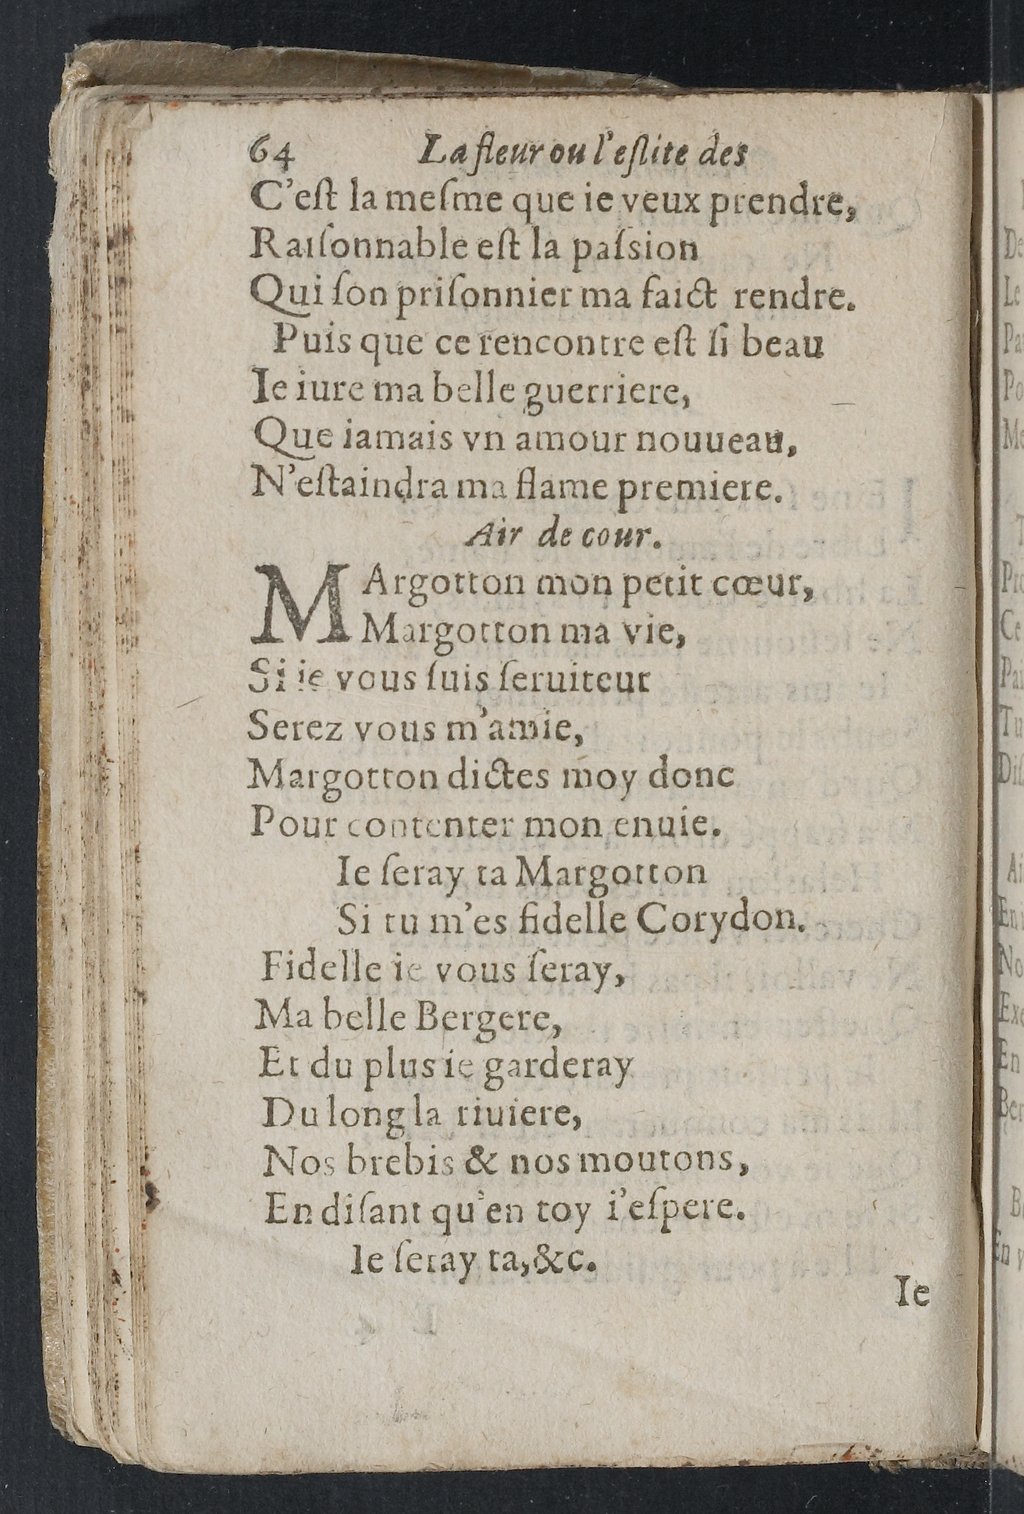 64 La fleur ou l'eſlite des
C'eſt la meſme que ie veux prendre,
Raiſonnable eſt la paſsion
Qui ſon priſonnier ma faict rendre.
Puis que ce rencontre eſt ſi beau
Ie iure ma belle guerriere,
Que iamais vn amour nouueau,
N'eſtaindra ma flame premiere.
Air de cour.
MArgotton mon petit cœur,
Margotton ma vie,
Si ie vous ſuis ſeruiteur
Serez vous m'amie,
Margotton dictes moy donc
Pour contenter mon enuie.
Ie ſeray ta Margotton
Si tu m'es fidelle Corydon.
Fidelle ie vous ſeray,
Ma belle Bergere,
Et du plus ie garderay
Du long la riuiere,
Nos brebis & nos moutons,
En diſant qu'en toy i'eſpere.
Ie ſeray ta,&c.
Ie